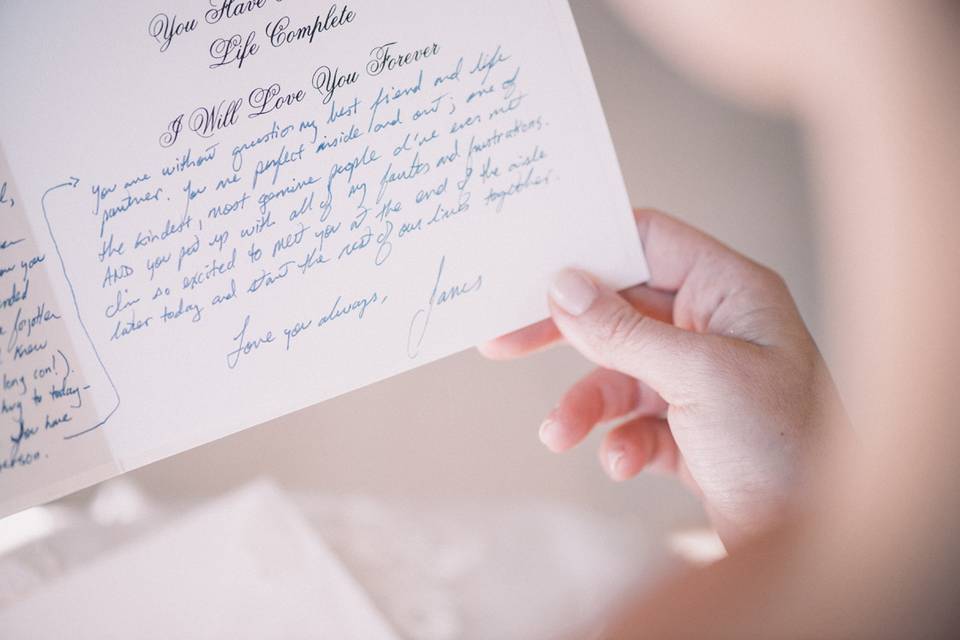 You Have
Life Complete
I Will Love You Forever
you are without question my best friend and life
partner. You are perfect inside (and out; one of
the kindest, most genuine people I've ever met
AND you put up with all of my faults and frustrations.
I'm so excited to meet you at the end of the aisle
later today and start the rest of our lives together.
Love you always,
James
you
forgotten
knew
long con!).
to today-
you have